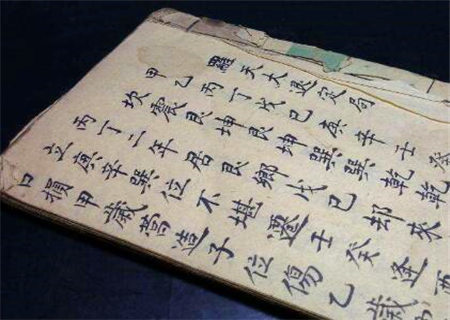 羅天大退定局
甲乙丙丁戊己庚辛壬癸
坎震艮坤艮坤巽巽乾乾
丙丁二年居艮鄉戊己却來
立庚辛巽位不堪遷壬癸逢西
口損甲歲蒿造子位傷乙歲